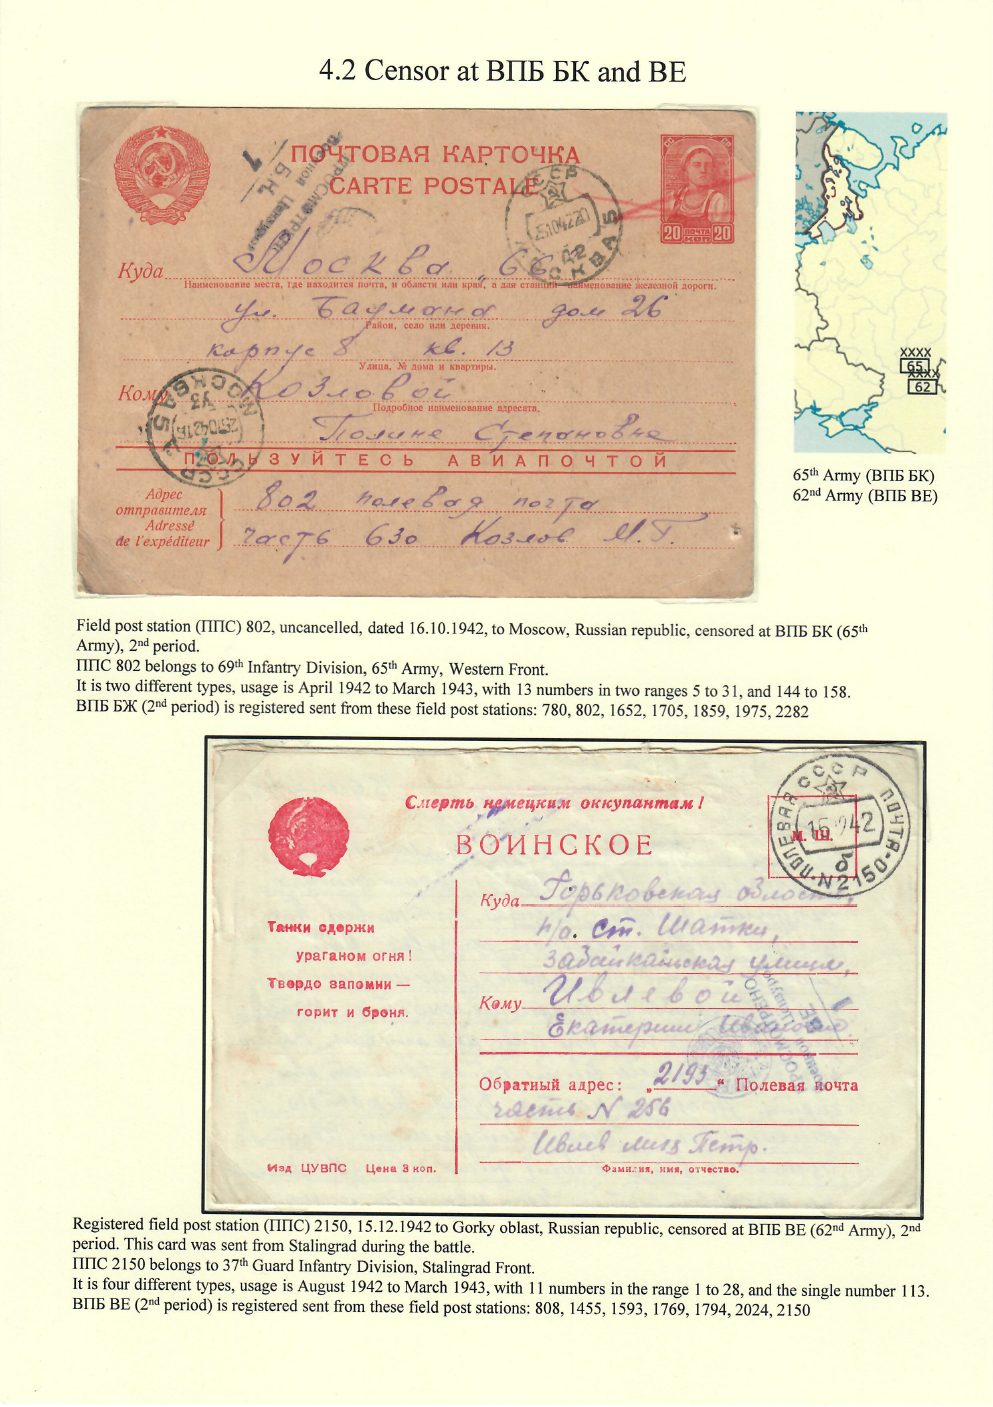 4.2 Censor at ВПБ БК and ВЕ
ПОЧТОВАЯ КАРТОЧКА
CARTE POSTALE
ПРОСМОТРЕНО
Военной Цензурой
Б.К.
1
СССР
МОСКВА 5
20 ПОЧТА 20
КОП
Куда Москва „66
Наименование места, где находится почта, и области или края, а для станций наименование железной дороги.
ул. Баумана дом 26
Район, село или деревня.
корпус 8 кв. 13
Улица, № дома и квартиры.
Кому Козловой
Подробное наименование адресата.
Полине Степановне
МОСКВА 5
СССР
ПОЛЬЗУЙТЕСЬ АВИАПОЧТОЙ
Адрес
отправителя
Adressé
de l'expéditeur
802 полевая почта
часть 630 Козлов М.Г.
XXXX
65
XXXX
62
65th Army (ВПБ БК)
62nd Army (ВПБ ВЕ)
Field post station (ППС) 802, uncancelled, dated 16.10.1942, to Moscow, Russian republic, censored at ВПБ БК (65th
Army), 2nd period.
ППС 802 belongs to 69th Infantry Division, 65th Army, Western Front.
It is two different types, usage is April 1942 to March 1943, with 13 numbers in two ranges 5 to 31, and 144 to 158.
ВПБ БЖ (2nd period) is registered sent from these field post stations: 780, 802, 1652, 1705, 1859, 1975, 2282
Смерть немецким оккупантам!
ВОИНСКОЕ
СССР
ПОЛЕВАЯ ПОЧТА
N2150
Танки сдержи
ураганом огня!
Твердо запомни —
горит и броня.
Куда Горьковская область,
п/о. ст. Шатки,
Забайкальская улица,
Кому Ивлевой
Екатерине Ивановне
ПРОСМОТРЕНО
Военной Цензурой
ВЕ
1
Обратный адрес: „2193“ Полевая почта
часть N 256
Ивлев Петр.
Фамилия, имя, отчество.
Изд ЦУВПС Цена 3 коп.
Registered field post station (ППС) 2150, 15.12.1942 to Gorky oblast, Russian republic, censored at ВПБ ВЕ (62nd Army), 2nd
period. This card was sent from Stalingrad during the battle.
ППС 2150 belongs to 37th Guard Infantry Division, Stalingrad Front.
It is four different types, usage is August 1942 to March 1943, with 11 numbers in the range 1 to 28, and the single number 113.
ВПБ ВЕ (2nd period) is registered sent from these field post stations: 808, 1455, 1593, 1769, 1794, 2024, 2150